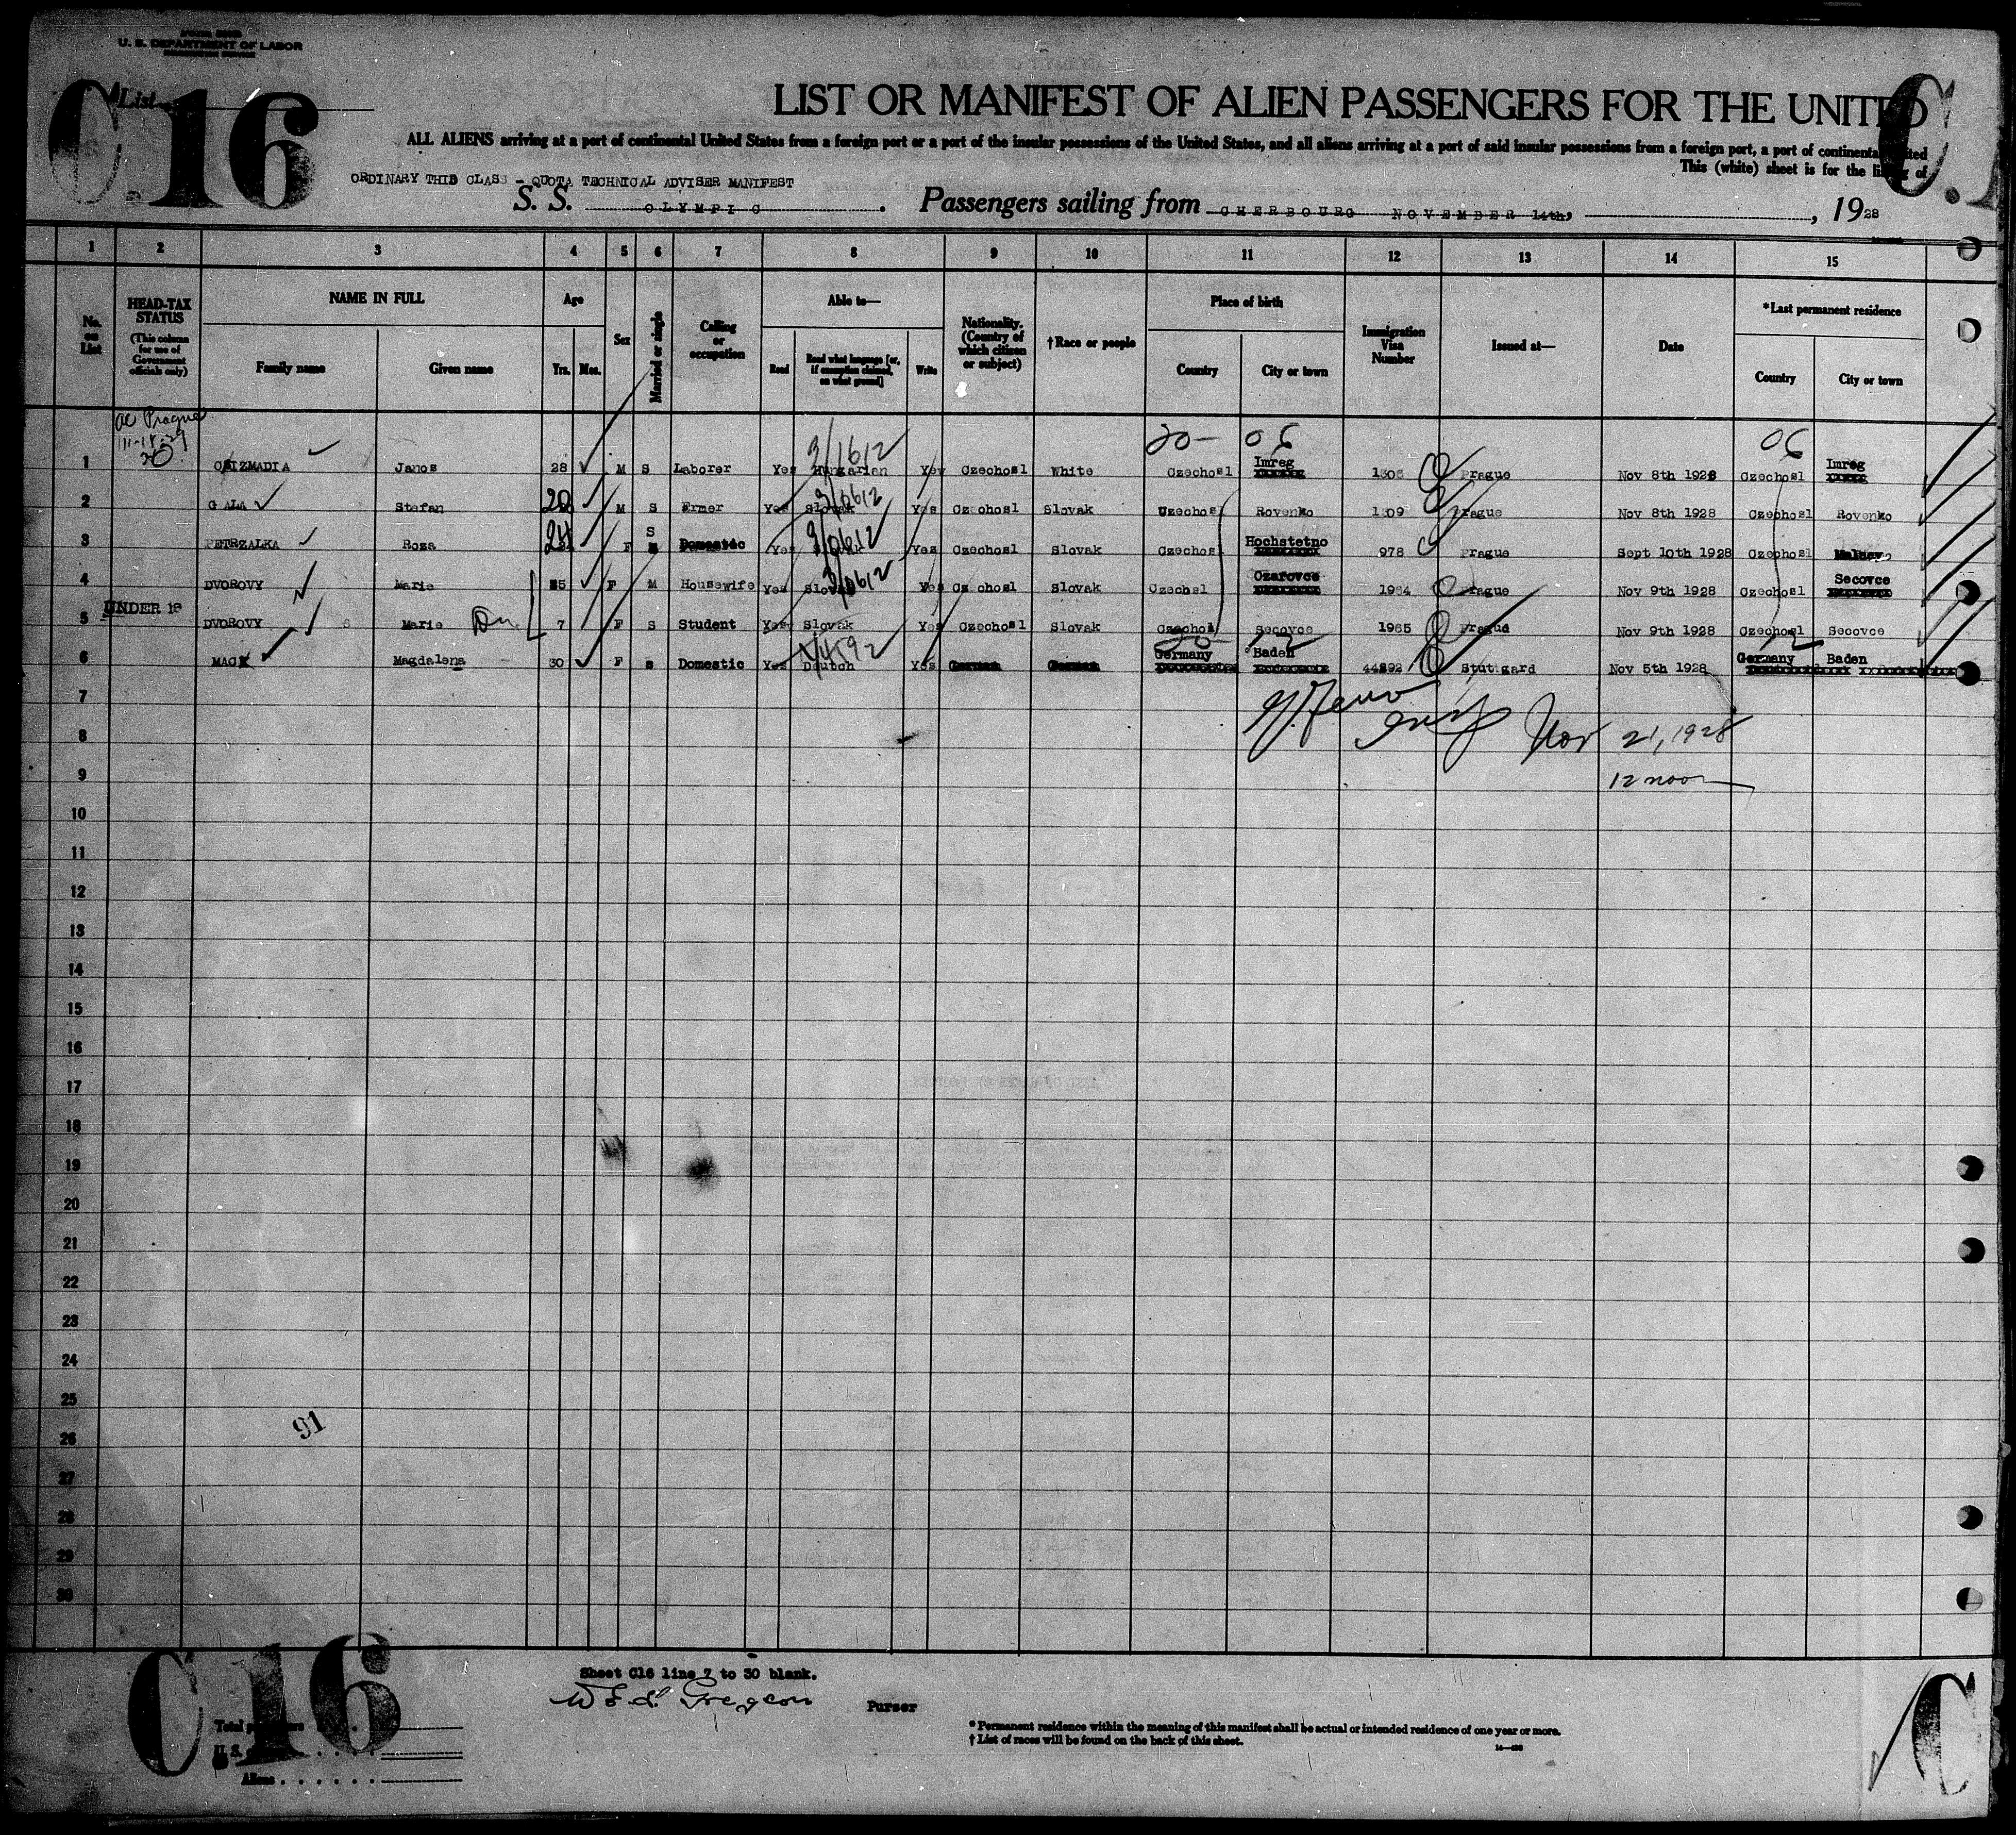 U. S. DEPARTMENT OF LABOR
List
C16
C.1
LIST OR MANIFEST OF ALIEN PASSENGERS FOR THE UNITED
ALL ALIENS arriving at a port of continental United States from a foreign port or a port of the insular possessions of the United States, and all aliens arriving at a port of said insular possessions from a foreign port, a port of continental
This (white) sheet is for the listing of
ORDINARY THID CLASS - QUOTA TECHNICAL ADVISER MANIFEST
S. S. OLYMPIC. Passengers sailing from CHERBOURG NOVEMBER 14th, , 1928
1 2 3 4 5 6 7 8 9 10 11 12 13 14 15
No. on List
HEAD-TAX STATUS (This column for use of Government officials only)
NAME IN FULL
Family name Given name
Age Yrs. Mos.
Sex
Married or single
Calling or occupation
Able to—
Read Read what language [or, if exemption claimed, on what ground] Write
Nationality. (Country of which citizen or subject)
†Race or people
Place of birth
Country City or town
Immigration Visa Number
Issued at—
Date
*Last permanent residence
Country City or town
Prague
3/1612 20- 06 06
1 CSIZMADIA Janos 28 M S Laborer Yes Hungarian Yes Czechosl White Czechosl Imreg Prague Nov 8th 1928 Czechosl Imreg
3/0612
2 GALA Stefan M S Ermer Yes Slovak Yes Czechosl Slovak Czechosl Rovenko 1309 Prague Nov 8th 1928 Czechosl Rovenko
3/0612
3 PETRZALKA Roza F S Domestic Yes Yes Czechosl Slovak Czechosl Hochstetno 978 Prague Sept 10th 1928 Czechosl
3/0612
4 DVOROVY Marie F M Housewife Yes Slovak Yes Czechosl Slovak Czechsl Ozarovce 1964 Prague Nov 9th 1928 Czechosl Secovce
UNDER 16
5 DVOROVY Marie 7 F S Student Yes Slovak Yes Czechosl Slovak Czechosl Secovce 1965 Prague Nov 9th 1928 Czechosl Secovce
6 MACK Magdalena 30 F S Domestic Yes Deutch Yes German German Germany Baden 44892 Stuttgard Nov 5th 1928 Germany Baden
7
Nov 21, 1928
8
12 noon
9
10
11
12
13
14
15
16
17
18
19
20
21
22
23
24
25
91
26
27
28
29
30
Sheet C16 line 7 to 30 blank.
Purser
C16
Total passengers
U. S.
Aliens
* Permanent residence within the meaning of this manifest shall be actual or intended residence of one year or more.
† List of races will be found on the back of this sheet.
C